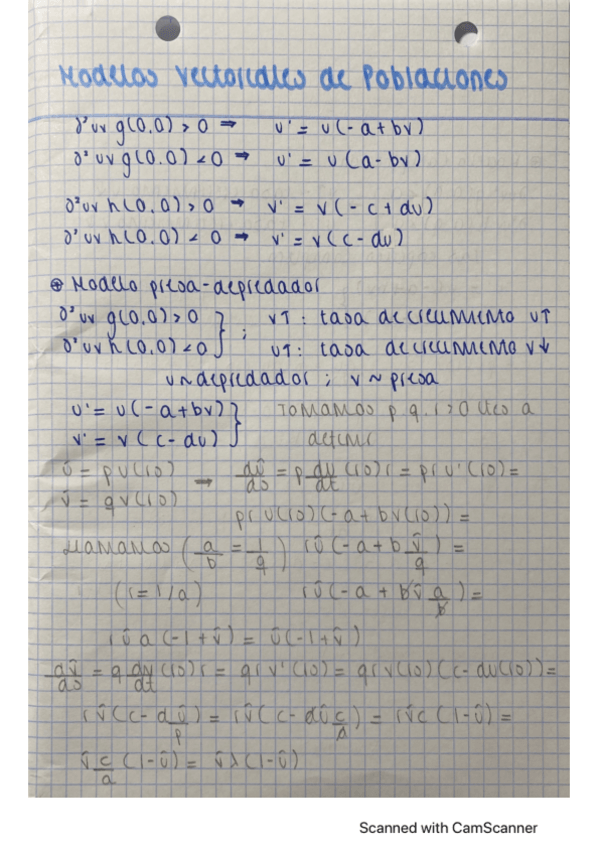 Modelos vectoriales de Poblaciones
∂²uv g(0,0) > 0 ⇒ u' = u(-a+bv)
∂²uv g(0,0) < 0 ⇒ u' = u(a-bv)
∂²uv h(0,0) > 0 ⇒ v' = v(-c+du)
∂²uv h(0,0) < 0 ⇒ v' = v(c-du)
⊕ Modelo presa-depredador
∂²uv g(0,0) > 0 } ; v↑ : tasa de crecimiento u↑
∂²uv h(0,0) < 0 } u↑ : tasa de crecimiento v↓
u ~ depredador ; v ~ presa
u' = u(-a+bv) } Tomamos p, q, r > 0 ctes a
v' = v(c-du) } definir
û = pu(rs) → dû/ds = p du/dt (rs) r = pr u'(rs) =
v̂ = qv(rs)
pr u(rs)(-a+bv(rs)) =
Llamamos (a/b = 1/q) rû(-a+b v̂/q) =
(r=1/a) rû(-a+bv̂ a/b) =
rûa(-1+v̂) = û(-1+v̂)
dv̂/ds = q dv/dt (rs) r = qr v'(rs) = qr v(rs)(c-du(rs)) =
rv̂(c-d û/p) = rv̂(c-dû c/d) = rv̂c(1-û) =
v̂ c/a (1-û) = v̂λ(1-û)
Scanned with CamScanner